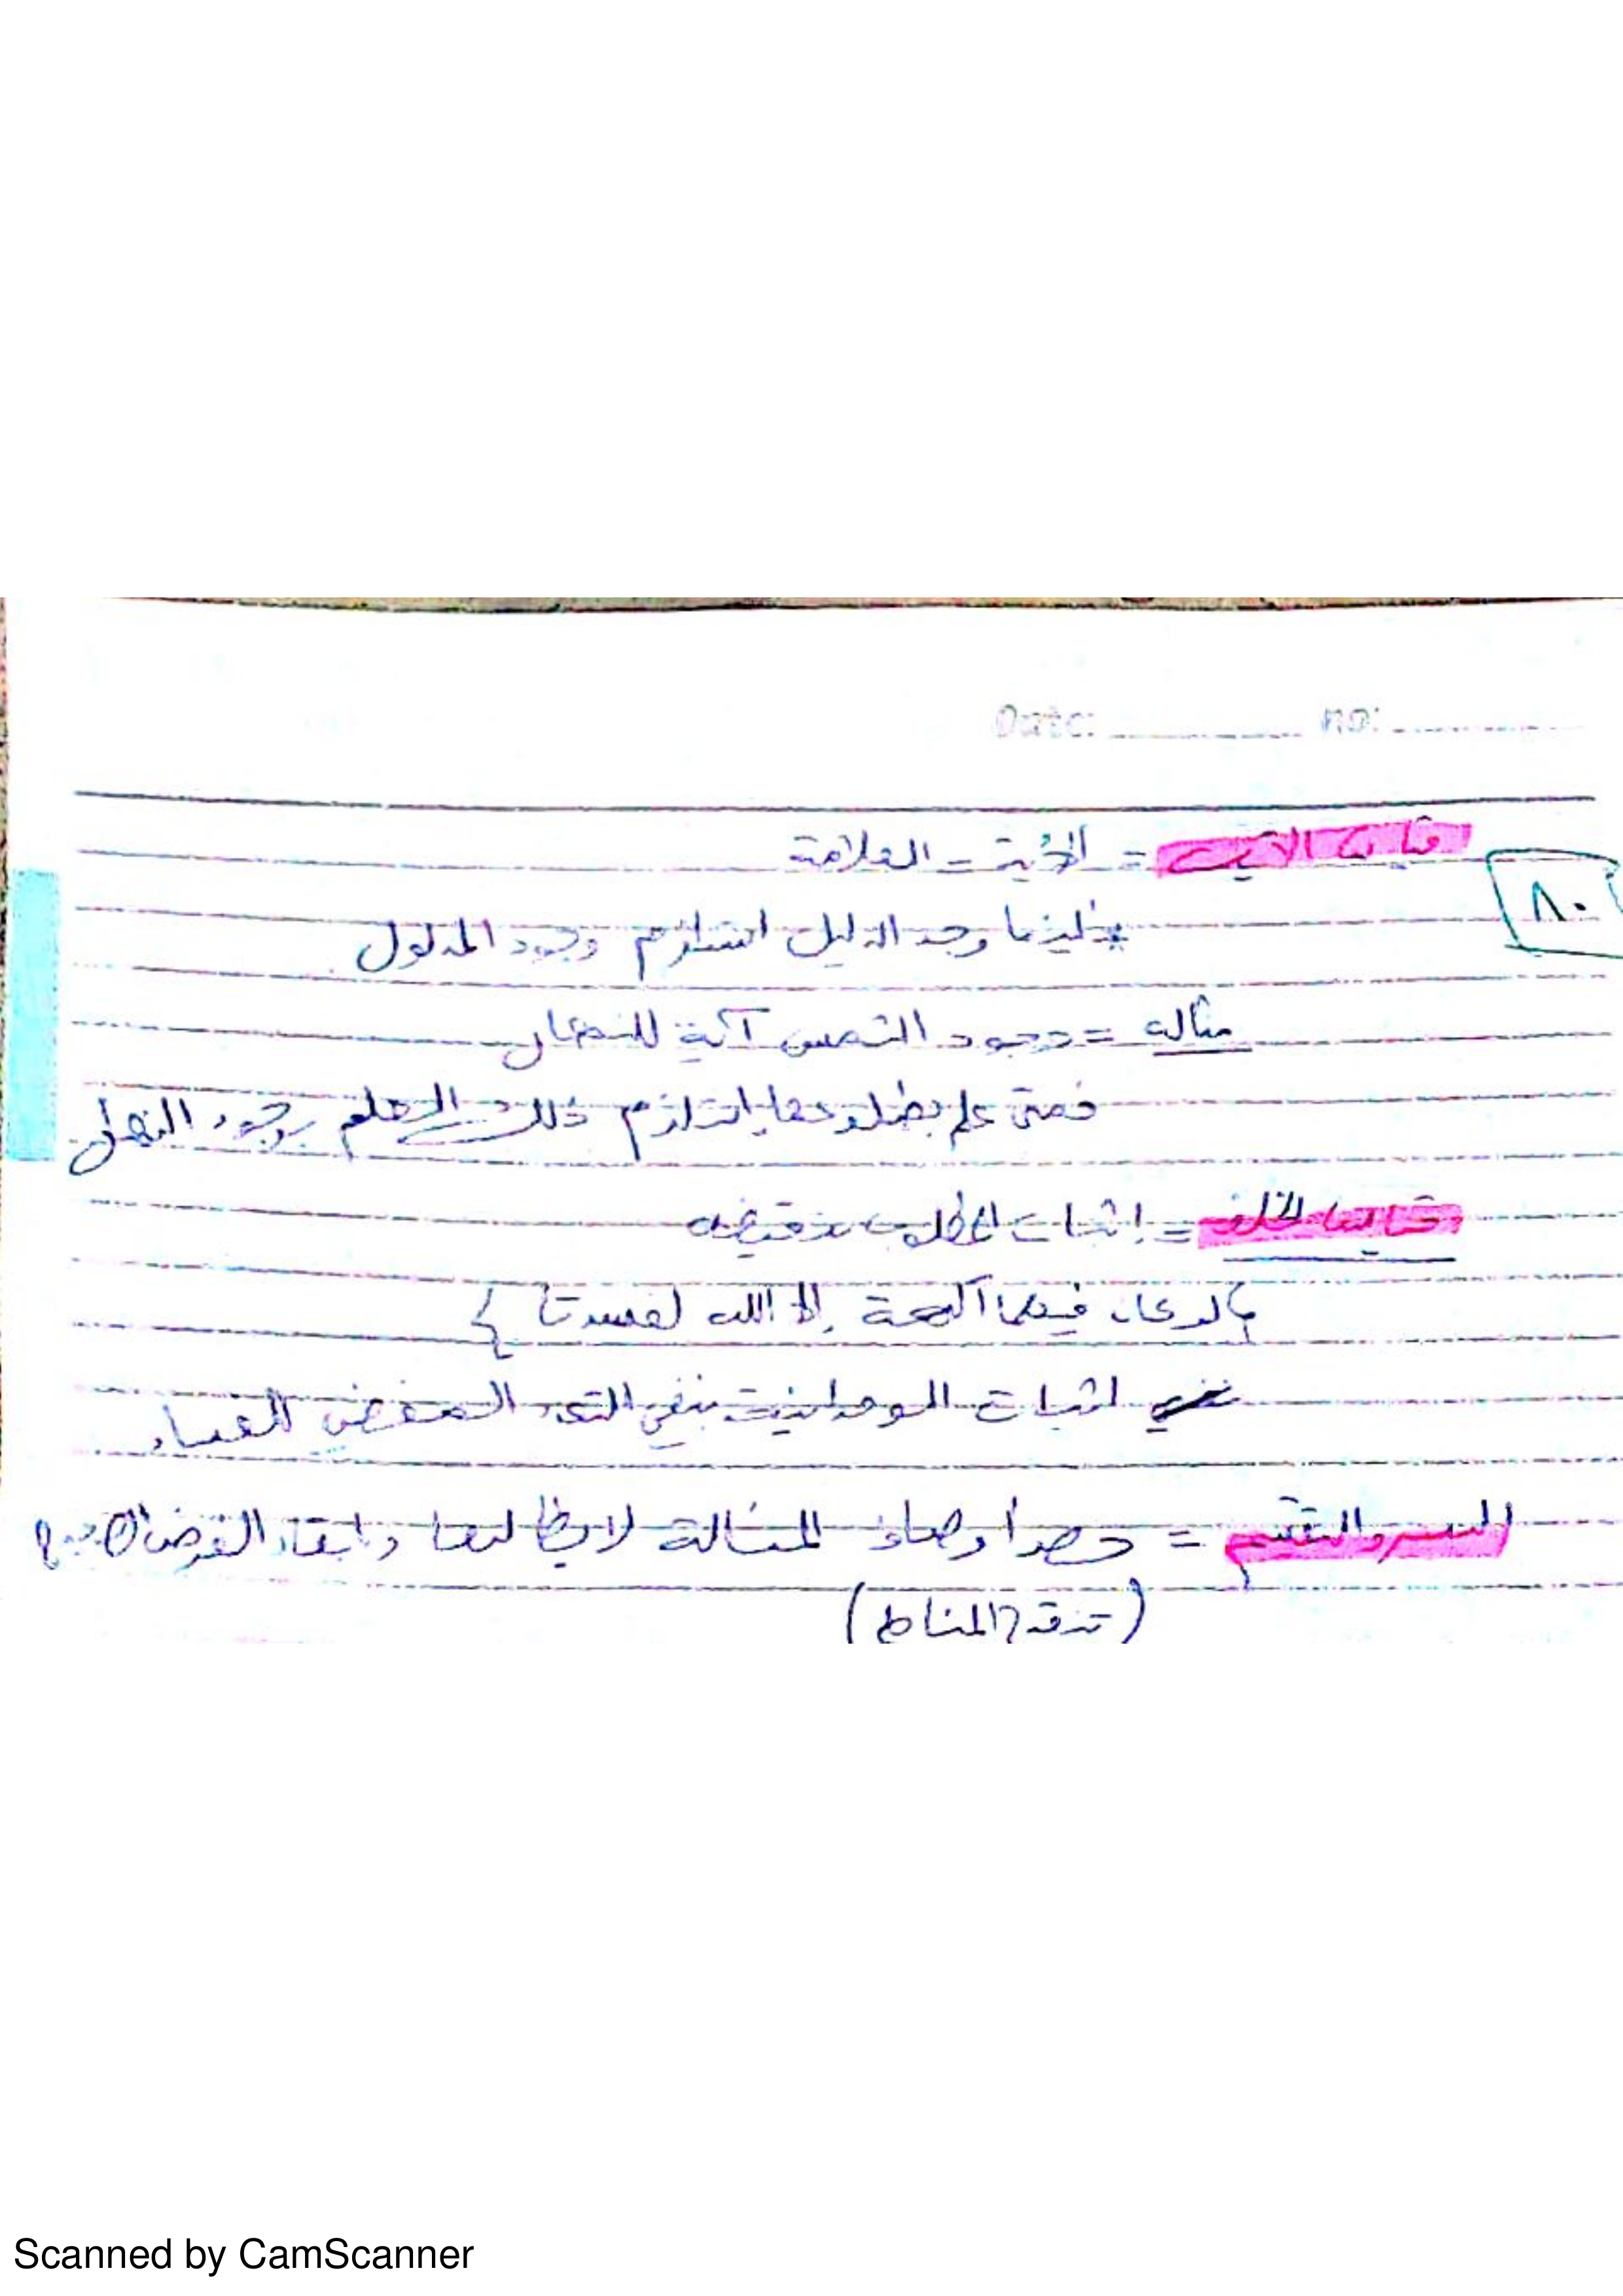 Date: no:
٨٠
قياس الآية = الآية = العلامة
* أينما وجد الدليل استلزم وجود المدلول
مثاله = وجود الشمس آية للنهار
فمتى علم بطلوعها استلزم ذلك العلم بوجود النهار
قياس الخلف = إثبات المطلوب بنقيضه
{لو كان فيهما آلهة إلا الله لفسدتا}
اثبات الوحدانية بنفي التعدد المفضي للفساد
السبر والتقسيم = حصر أوصاف المسألة لإبطالها وابقاء الفرض
(تنقيح المناط)
Scanned by CamScanner